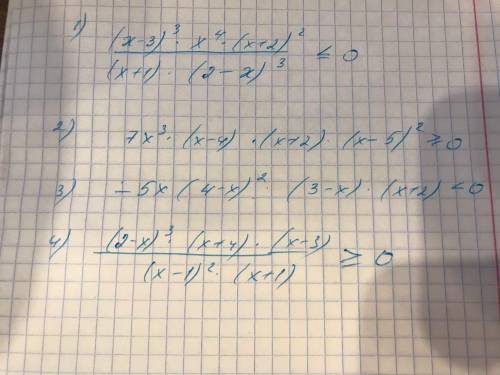 1) (x-3)³ · x⁴ · (x+2)² / (x+1) · (2-x)³ ≤ 0
2) 7x³ · (x-4) · (x+2) · (x-5)² ≥ 0
3) -5x (4-x)² · (3-x) · (x+2) < 0
4) (2-x)³ · (x+4) · (x-3) / (x-1)² · (x+1) ≥ 0